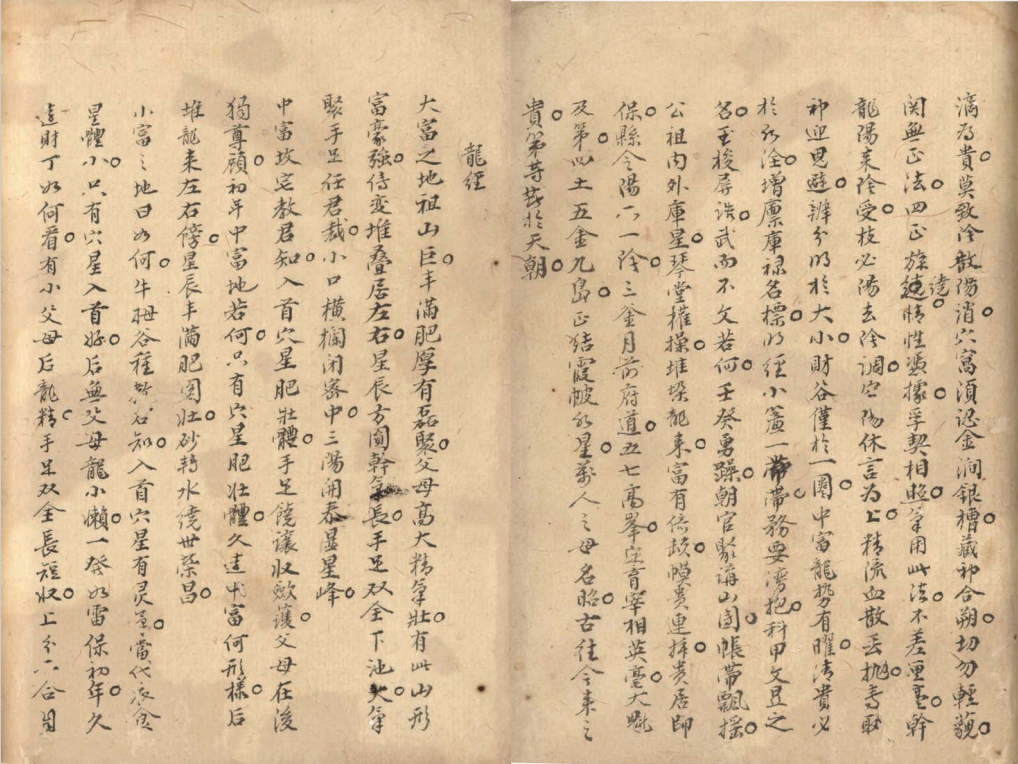 滴为貴莫致冷散陽消穴窩須認金澗銀槽藏神合朔切勿輕藐
関無正法四正旋遶情性憑據孚契相照筆用此法不差厘毫幹
龍陽来陰受枝必陽去陰調空陽休言为上精流血散丢抛专取
神迎思避辨分明於大小財谷僅於一圈中富龍势有曜清貴必
於水淦增廪庫禄名標明经小富一帶帶務要湾抱科甲文昱之
名玉梭尋誥武而不文若何壬癸勇躁朝官聚講山圍帳帶飄摇
公祖内外庫星琴堂權操堆垜龍来富有倍缺幞貴連择貴居郎
保縣令陽六一陰三金月前府道五七高峯宗育宰相英毫大魁
及第四土五金九島正结霞帔水星萬人之母名昭古往今来之
貴第莫於天朝
龍經
大富之地祖山巨丰滿肥厚有磊聚父母高大精氣壯有此山形
富豪強侍变堆叠居左右星辰方圓幹氣長手足双全下池大气
聚手足任君裁小口横攔闭密中三陽開泰显星峰
中富坎宅教君知入首穴星肥壯體手足饒讓収斂護父母在後
獨尊顧初年中富地若何只有穴星肥壯體久遠中富何形様后
堆龍来左右傍星辰丰滿肥圓壯砂轉水绕世榮昌
小富之地曰如何牛栂谷種教君知入首穴星有灵當代衣食
星體小只有穴星入首好后無父母龍小懶一發如雷保初年久
遠財丁如何看有小父母后龍精手足双全長短収上分下合自